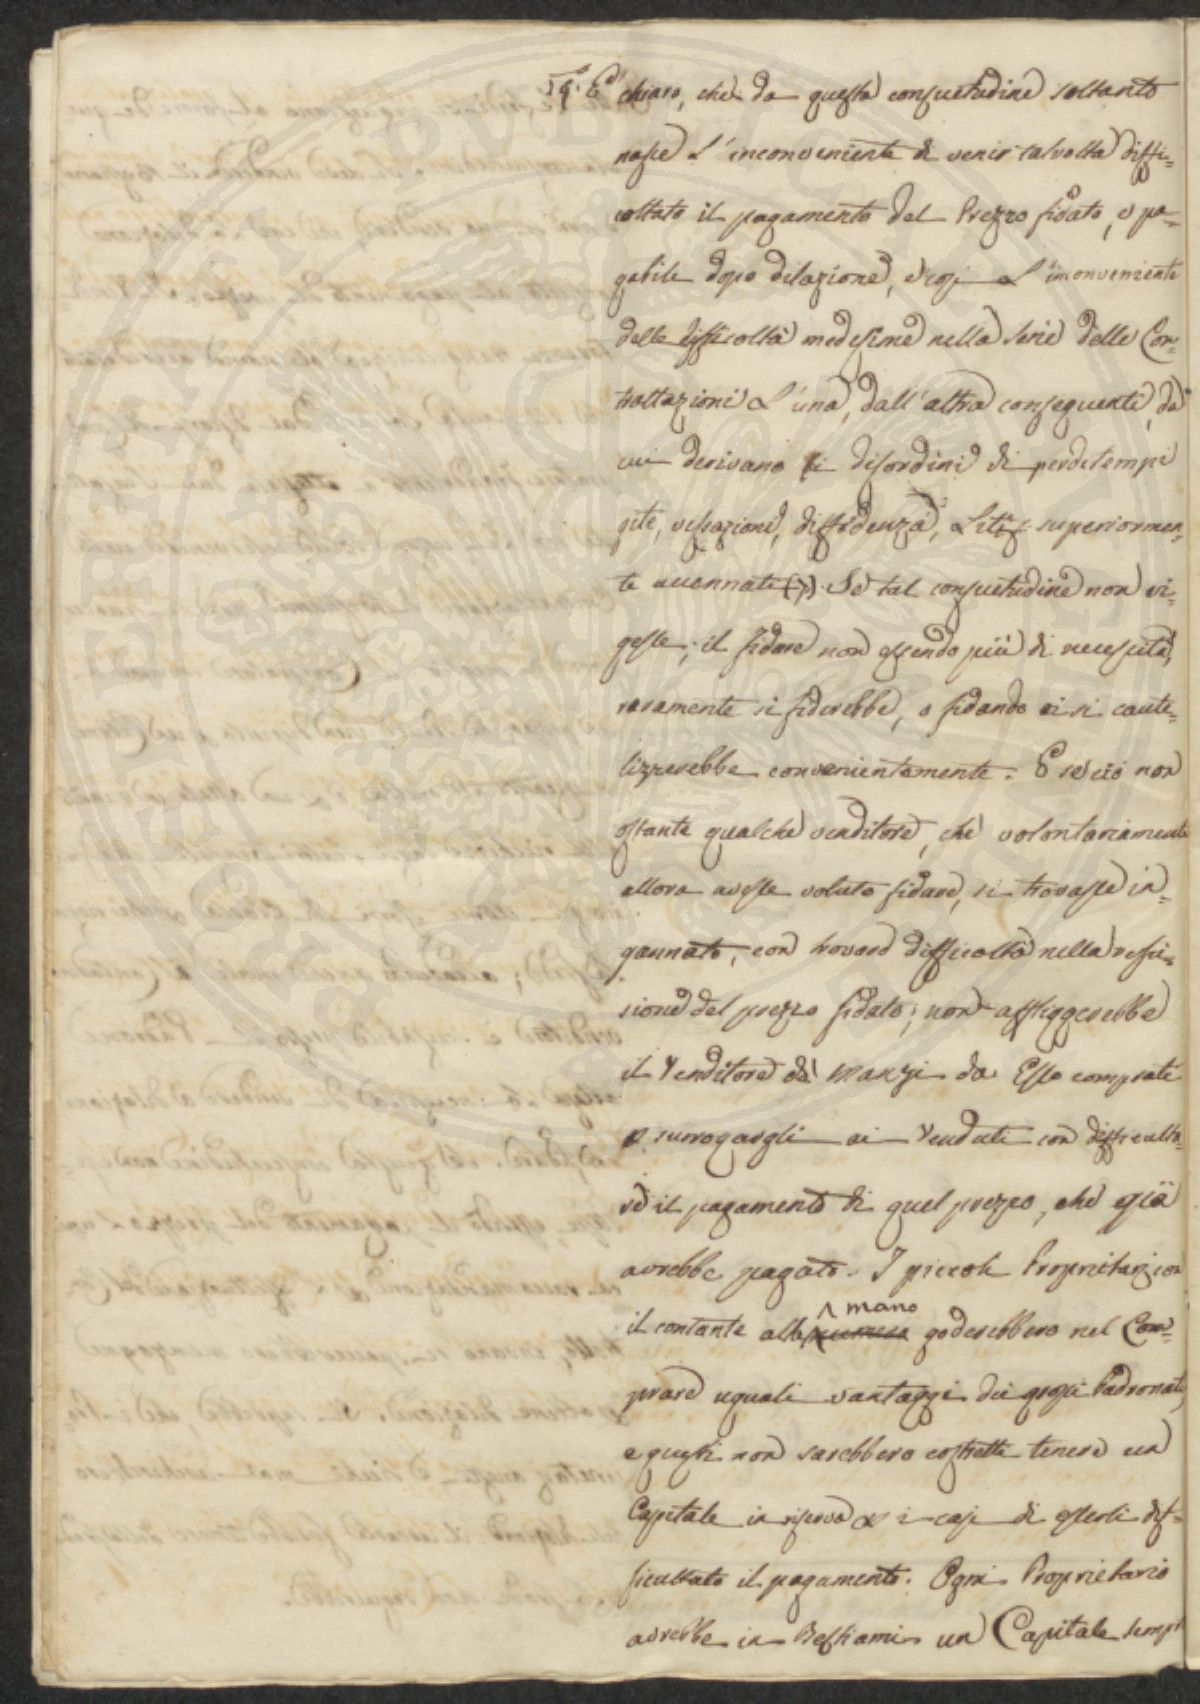 19.º E' chiaro, che da questa consuetudine soltanto
nasce l'inconveniente di venir talvolta diffi=
coltato il pagamento del Prezzo fidato, o pa=
gabile dopo dilazione, e così l'inconveniente
delle difficoltà medesime nella serie delle Con=
trattazioni l'una, dall'altra conseguenti, da
cui derivano i disordini di perditempi
gite, vessazioni, diffidenza, Liti superiormen=
te accennate (7). Se tal consuetudine non vi=
gesse; il fidare non essendo più di necessità,
raramente si fiderebbe, o fidando ci si caute=
lizzerebbe convenientemente. E se ciò non
ostante qualche venditore, che volontariamente
allora avesse voluto fidare, si trovasse in=
gannato, con trovare difficoltà nella reffu=
sione del prezzo fidato; non affliggerebbe
il Venditore di Manzi da Esso comprati
e surrogargli ai Venduti con difficolta=
re il pagamento di quel prezzo, che già
avrebbe pagato. I piccoli Proprietarj con
il contante alla mano goderebbero nel Com=
prare uguali vantaggi dei grossi Padronati,
e questi non sarebbero costretti tenere un
Capitale in riserva per i casi di esserli dif=
ficultato il pagamento. Ogni Proprietario
avrebbe in Bestiami un Capitale sempr